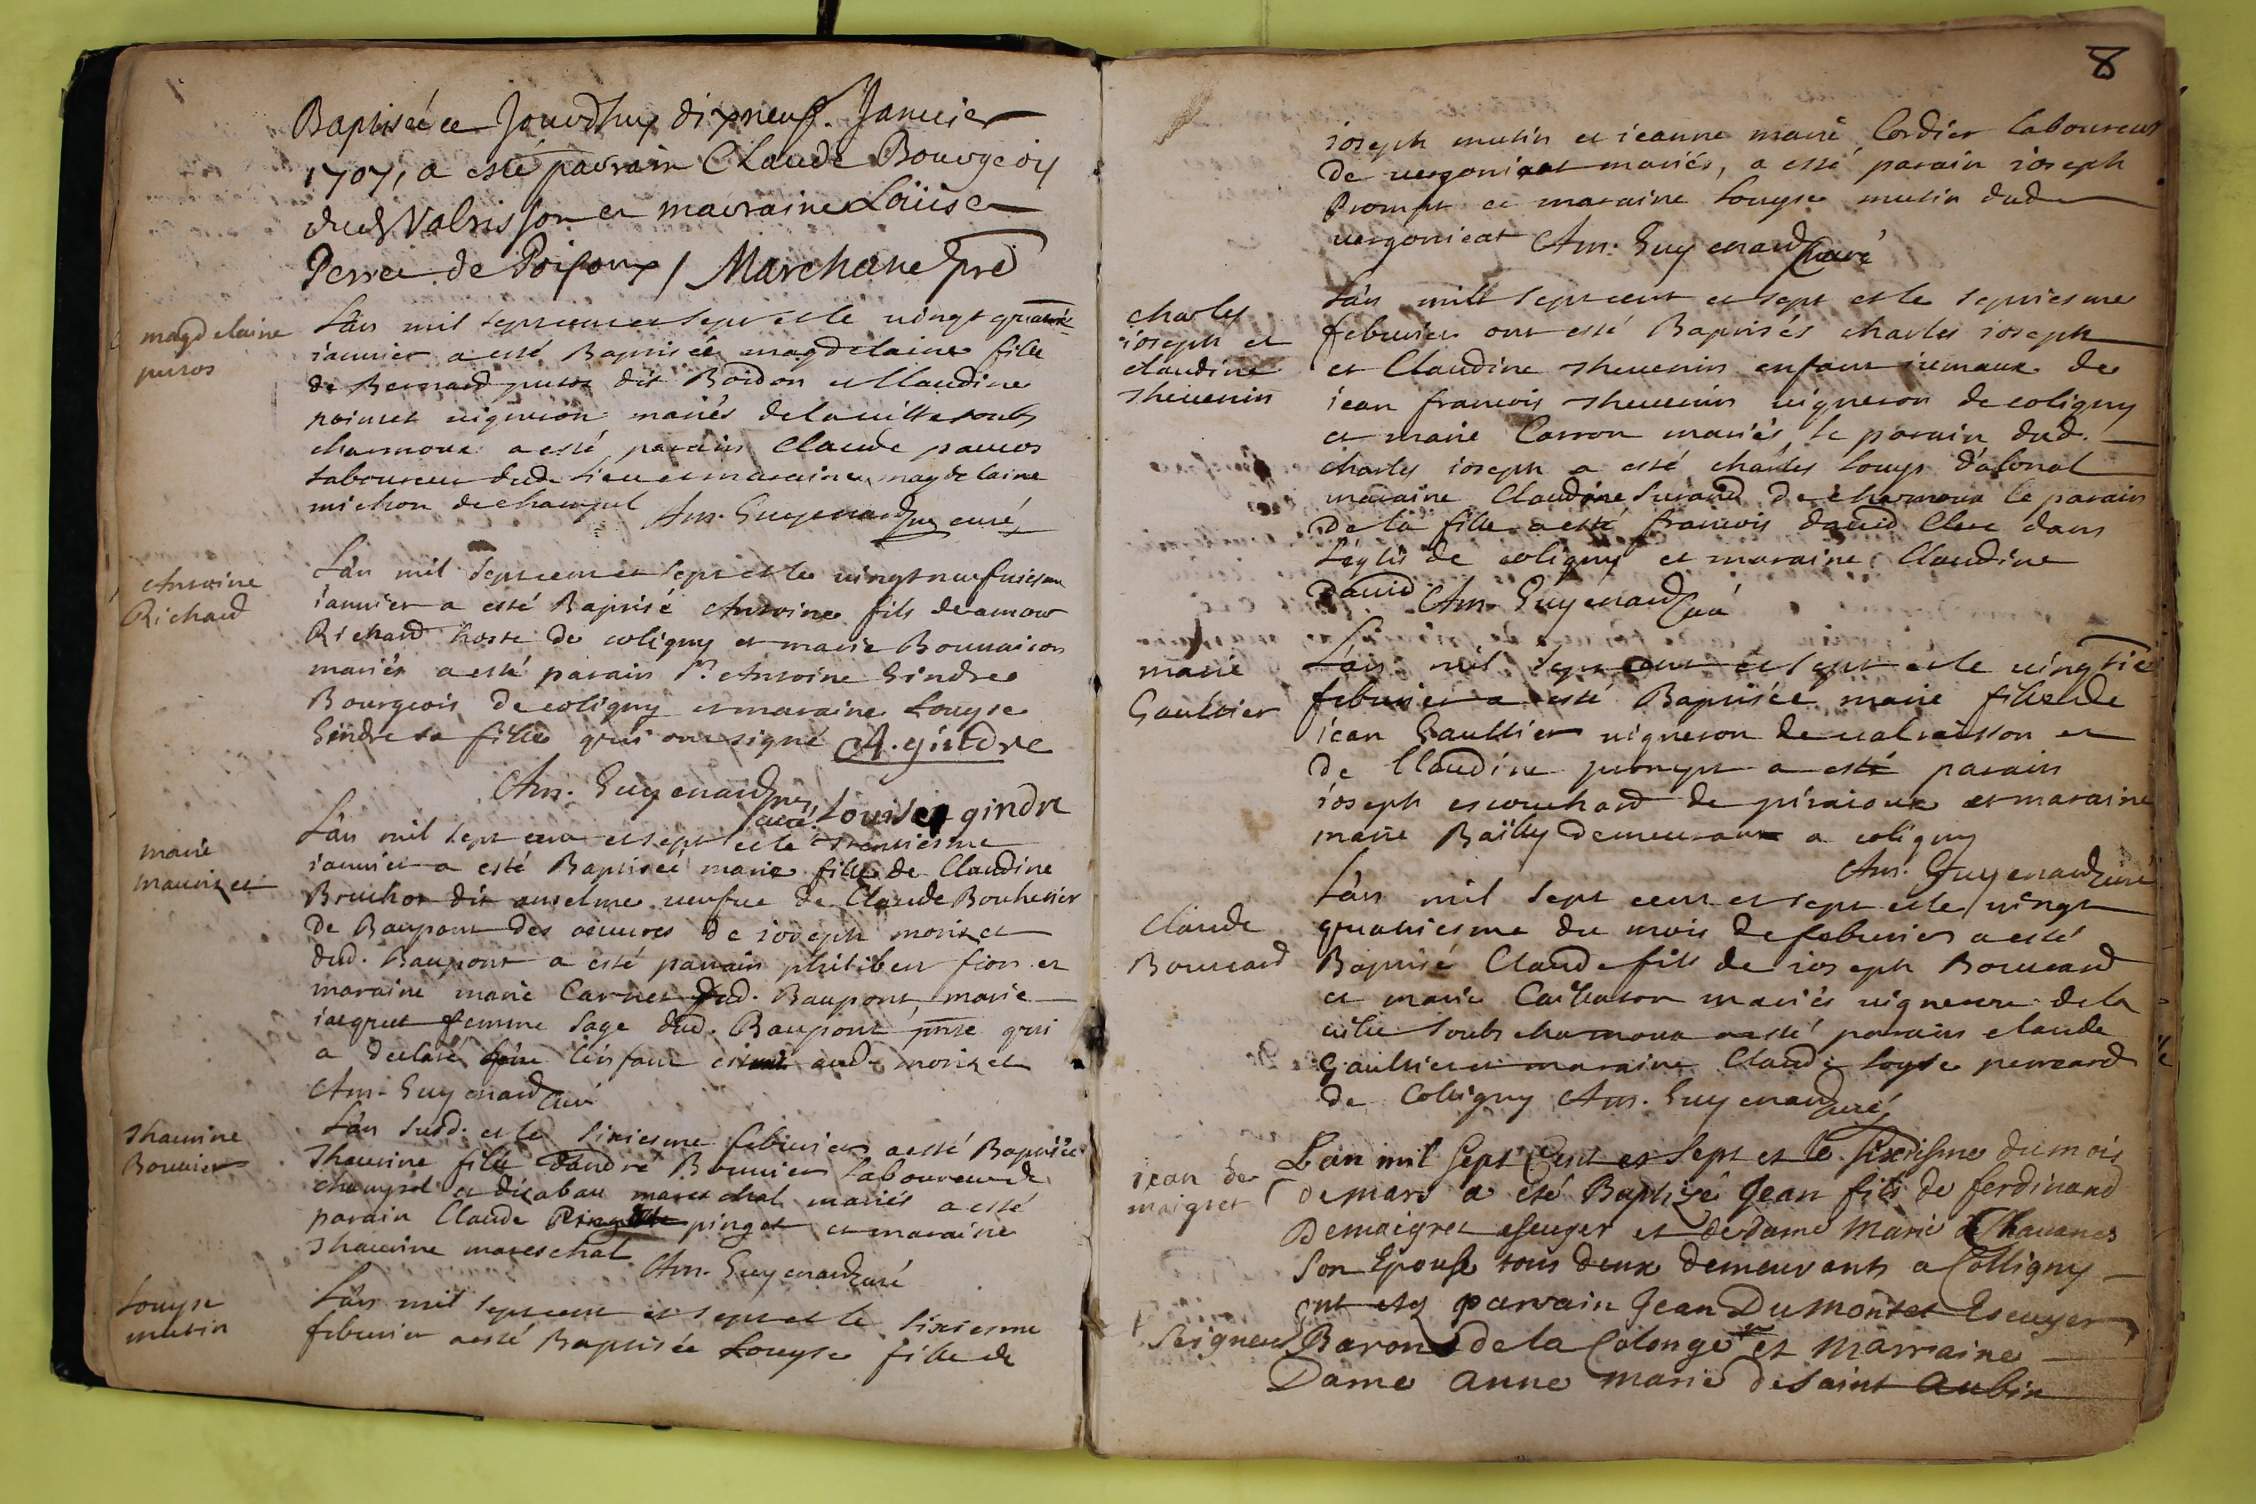 Baptiseé ce Jourdhuy dixneuf. Janvier
1707, a esté parrain Claude Bourgeois
dud Valrisson et marraine Loüise
Perret de Poisoux / Marchant pre
magdelaine
puros
L'an mil sept cent et sept et le vingt quatrie
ianuier a esté Baptisée magdelaine fille
de Bernard puros dit Boidon et Claudine
poinset uigneron mariés de la uille soubs
charmoux a esté parain Claude paucos
laboureur dud lieu et maraine magdelaine
michon de champel Am. Guyenard curé
Antoine
Richard
L'an mil sept cent et sept et le uingt neufuiesme
ianuier a esté Baptisé Antoine fils de amour
Richard hoste de coligny et marie Bonnaison
mariés a esté parain Sr. Antoine Gindre
Bourgeois de coligny et maraine Louyse
Gindre sa fille qui ont signé A. gindre
Am. Guyenard curé Louise gindre
marie
mauriset
L'an mil sept cent et sept et le trentiesme
ianuier a esté Baptiseé marie fille de Claudine
Bruchon dit anselme uefue de Claude Bouhenier
de Baupont des oeuures de ioseph moriset
dud. Baupont a esté parain philibert fion et
maraine marie Carnet dud. Baupont marie
iacquet femme sage dud. Baupont pnte qui
a declaré l'enfant estre aud moriset
Am. Guyenard curé
Thaurine
Bouuier
L'an susd. et le sixiesme februier a esté Baptisée
Thaurine fille d'andré Bouuier laboureur de
champel et mareschal mariés a esté
parain Claude pingot et maraine
Thaurine mareschal Am. Guyenard curé
Louyse
mutin
L'an mil sept cent et sept et le sixiesme
februier a esté Baptisée Louyse fille de
8
ioseph mutin et ieanne marie Cordier laboureur
de uergonieat mariés, a esté parain ioseph
Prompt et maraine Louyse mutin dud
uergonieat Am. Guyenard Curé
charles
ioseph et
claudine
Theuenin
L'an mil sept cent et sept et le septiesme
februier ont esté Baptisés charles ioseph
et Claudine Theuenin enfant iumaux de
iean francois Theuenin uigneron de coligny
et marie Carron mariés, le parain dud.
charles ioseph a esté charles Louys d'alonal
maraine Claudine Suraud de charmoux le parain
De la fille a esté francois dauid Clerc dans
l'eglis de coligny et maraine Claudine
Dauid Am. Guyenard curé
marie
Gaultier
L'an mil sept cent et sept et le uingtie
februier a esté Baptisée marie fille de
iean Gaultier uigneron de ualraisson et
de Claudine prompt a esté parain
ioseph escouchard de piraioux et maraine
marie Baïlly demeurant a coligny
Am. Guyenard curé
Claude
Boucard
L'an mil sept cent et sept et le uingt
quatriesme du mois de februier a esté
Baptisé Claude fils de ioseph Boucard
et marie mariés uigneron de la
uille soubs charmoux a esté parain claude
Gaultier et maraine Claude Loyse peureard
de Colligny Am. Guyenard curé
iean de
maigret
L'an mil sept Cent et sept et le sixiesme du mois
de mars a été Baptizé Jean fils de ferdinand
Demaigret escuyer et de dame Marie de Chauanes
son Epouse tous deux demeurants a Colligny
ont esté parrain Jean Dumontet Escuyer
Seigneur Baron de la Colonge et Marraine
Dame anne Marie de Saint Aubin